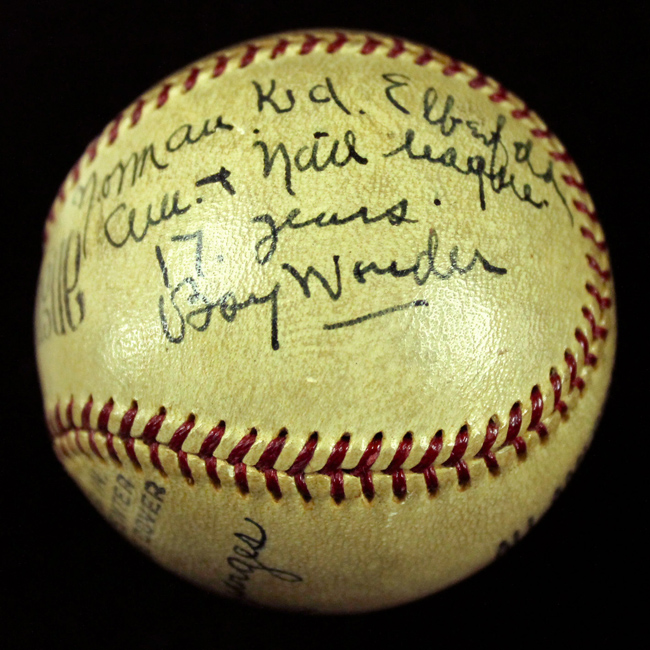 Norman Kid. Elberfeld
Am. + Nat'l League.
17. years.
Boy Wonder
COVER